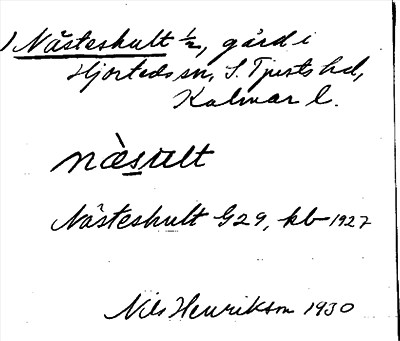 1) Nästeshult ½, gård i
Hjorteds sn, S. Tjusts hd,
Kalmar l.
næ̀sult
Nästeshult G29, kb 1927
Nils Henrikson 1930